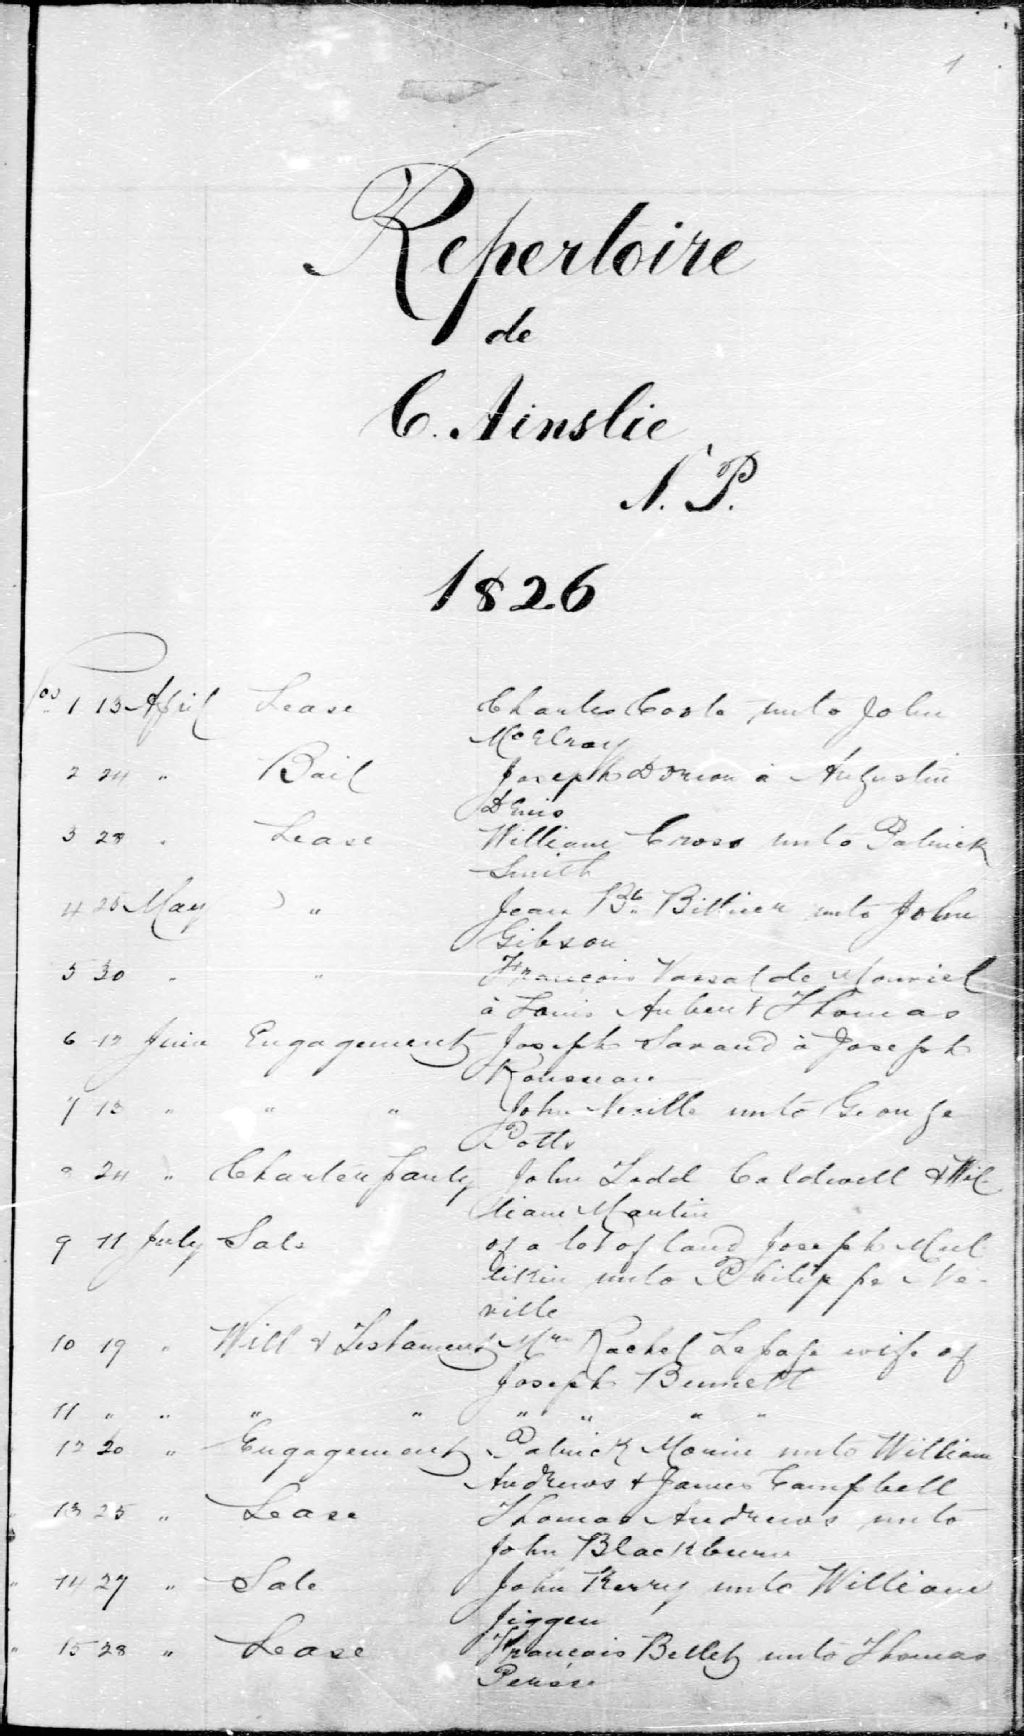 1
Repertoire
de
C. Ainslie
N. P.
1826
Nos 1 13 April Lease Charles Coote unto John
McElroy
2 24 " Bail Joseph Dorion à Augustin
Denis
3 28 " Lease William Cross unto Patrick
Smith
4 25 May " Jean Bte. unto John
Gibson
5 30 " " François Vassal de Monviel
à Louis Aubert Thomas
6 12 Juin Engagement Joseph Savard à Joseph
Rousseau
7 13 " " " John Neville unto George
Potts
8 24 " Charter party John Todd Caldwell & Wil
liam Martin
9 11 July Sale of a lot of land Joseph Mul
likin unto Philippe Ne-
ville
10 19 " Will & Testament Mrs Rachel Lepage wife of
Joseph Bennett
11 " " " " " " " "
12 20 " Engagement Patrick unto William
Andrews & James Campbell
13 25 " Lease Thomas Andrews unto
John Blackburn
" 14 27 " Sale John Kerry unto William
Jiggen
" 15 28 " Lease François Bellet unto Thomas